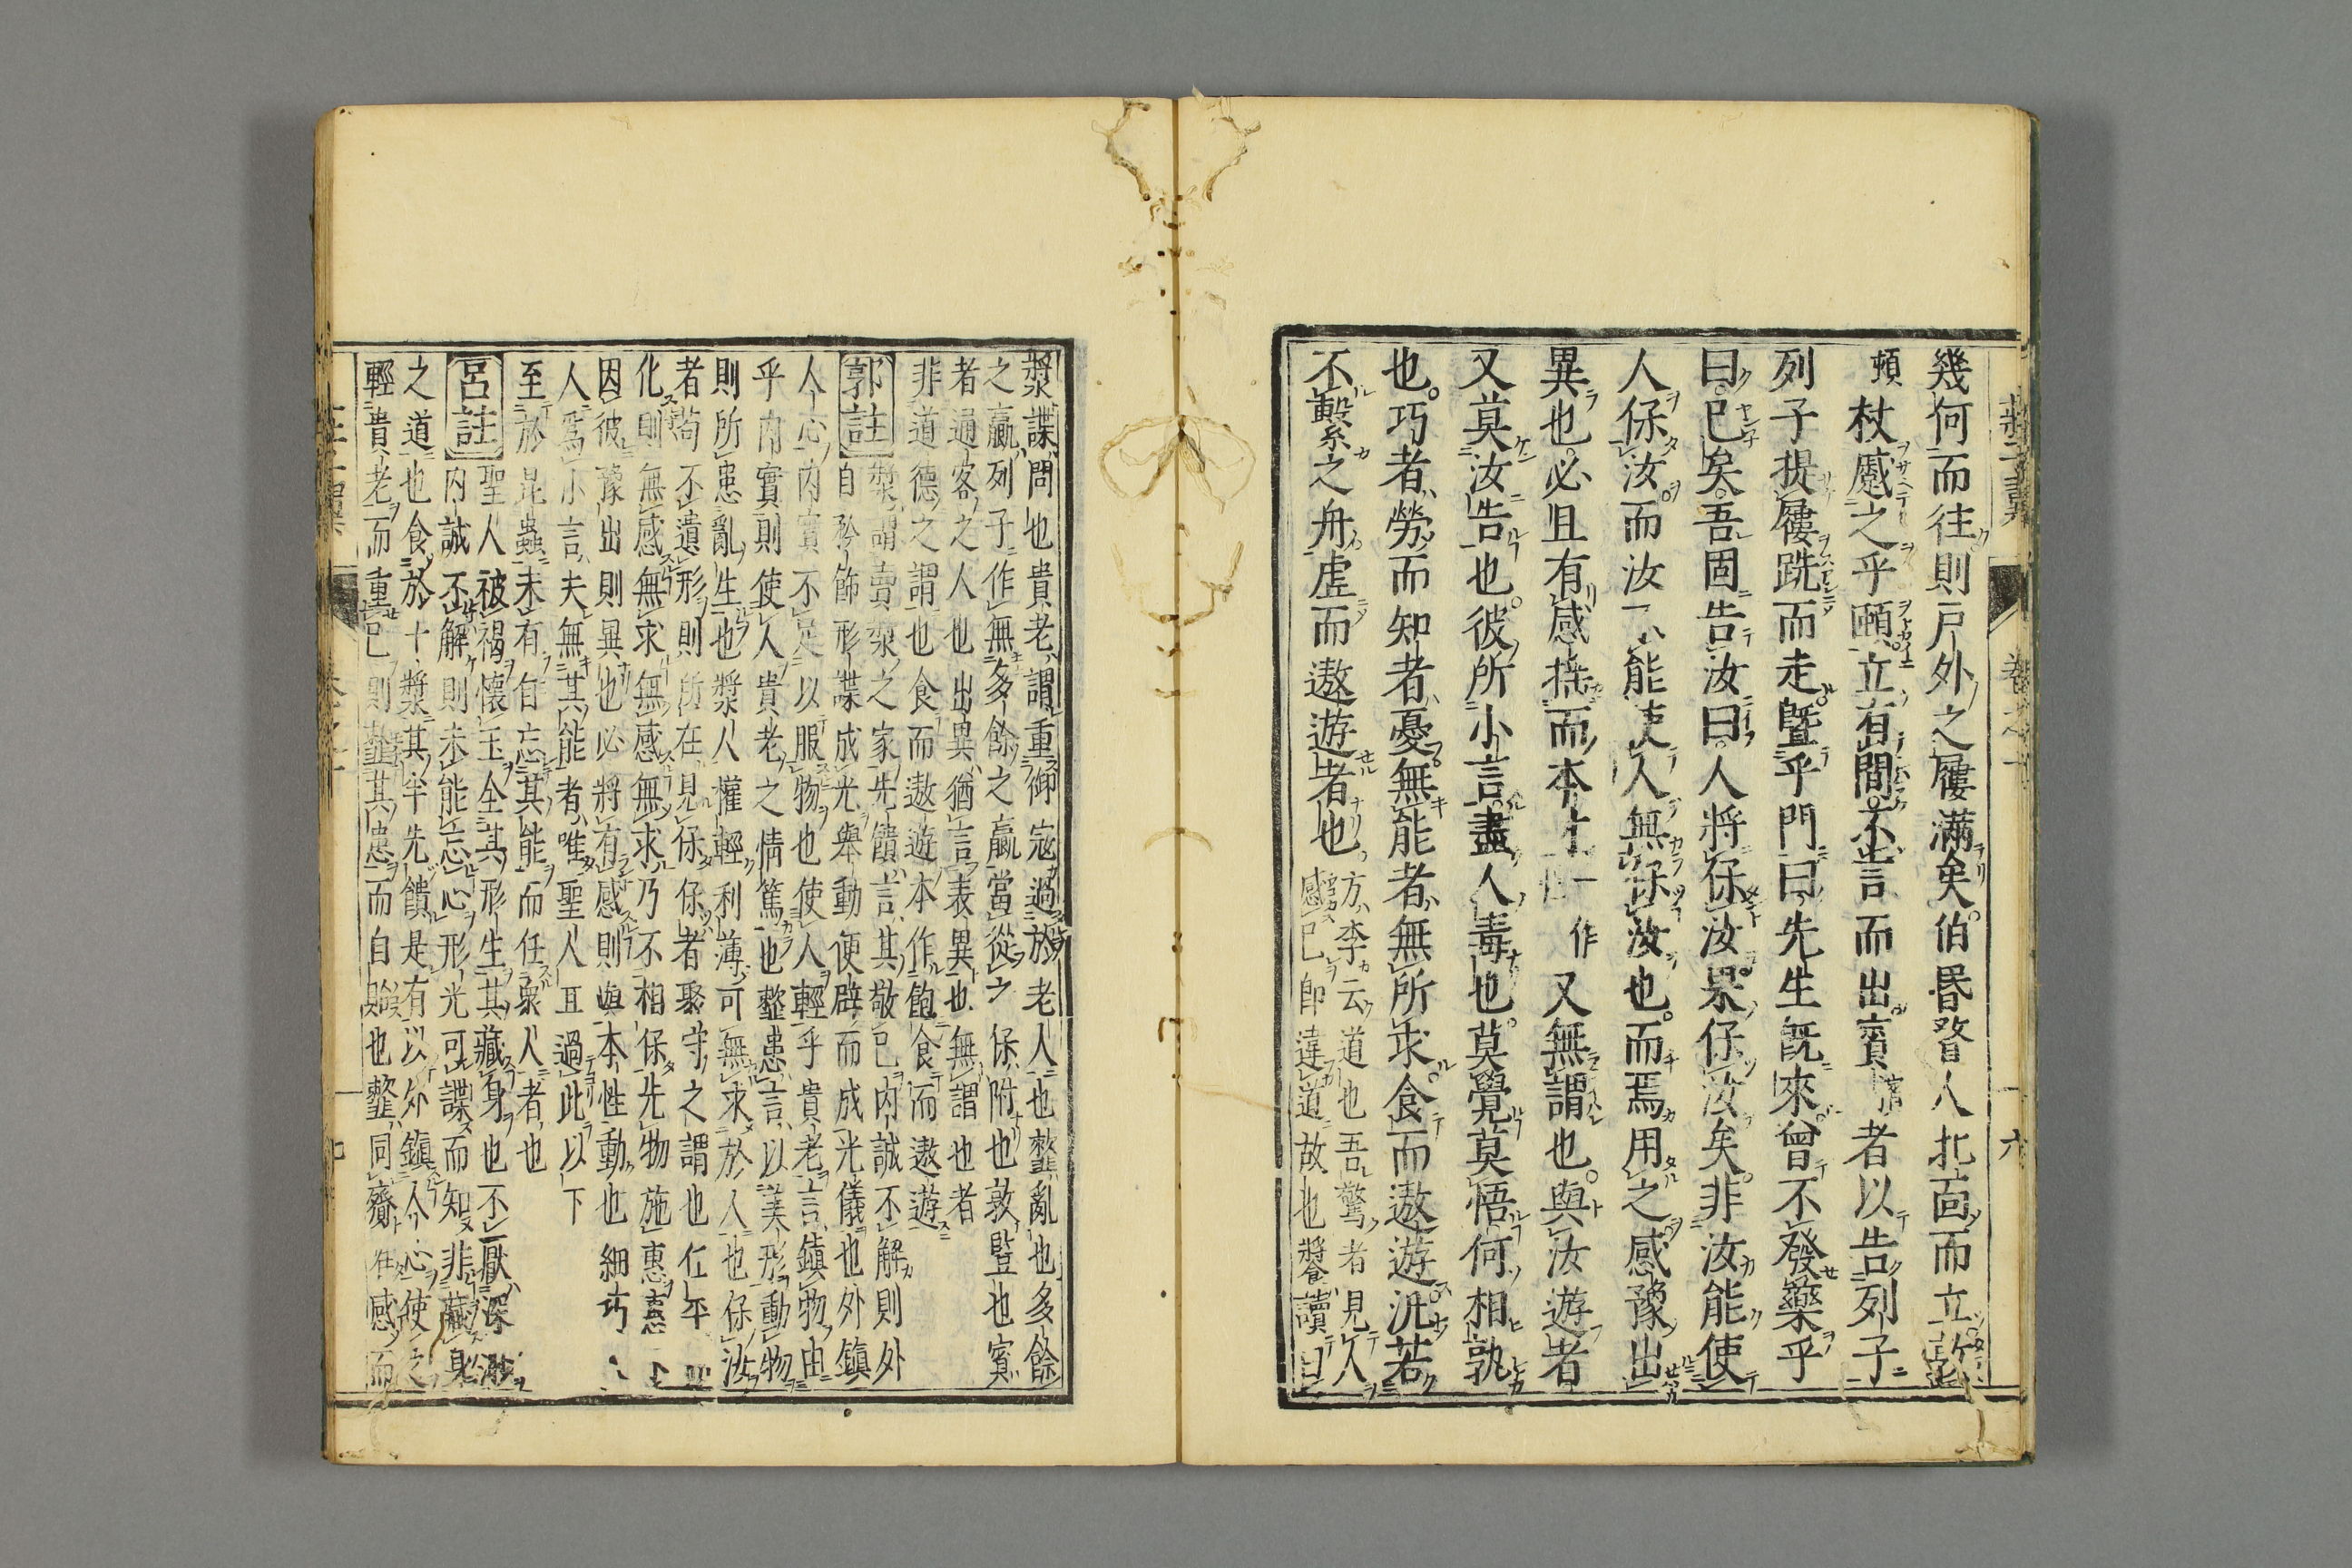 幾何而往則戸外之屨滿矣伯昬瞀人北面而立敦
頓杖蹙之乎頤立有間不言而出賓者以告列子
列子提屨跣而走曁乎門曰先生既來曾不發藥乎
曰已矣吾固告汝曰人將保汝果保汝矣非汝能使
人保汝而汝不能使人無保汝也而焉用之感豫出
異也必且有感搖而本才一作又無謂也與汝遊者
又莫汝告也彼所小言盡人毒也莫覺莫悟何相孰
也巧者勞而知者憂無能者無所求食而遨遊汎若
不繫之舟虛而遨遊者也
方李云道也吾驚者見人
感已即違道故也漿讀曰
漿諜間也貴老謂重御寇過於老人也𩐎亂也多餘
之贏列子作無多餘之贏當從之保附也敦豎也賓
者通客之人也出異猶言表異也無謂也者
非道德之謂也食而遨遊本作飽食而遨遊
郭註
漿謂賣漿之家先饋言其敬已内誠不解則外
自矜飾形諜成光舉動便辟而成光儀也外鎮
人心内實不足以服物也使人輕乎貴老言鎮物由
乎内實則使人貴老之情篤也𩐎患言以美形動物
則所患亂生也漿人權輕利薄可無求於人也保汝
者苟不遺形則所在見保保者聚守之謂也任平
化則無感無求無感無求乃不相保先物施惠惠
因彼豫出則異也必將有感則與本性動也細巧
人爲小言夫無其能者唯聖人且過此以下
至於昆蟲未有自忘其能而任衆人者也
呂註
聖人被褐懷玉全其形生其藏身也不厭深渺
内誠不解則未能忘心形光可諜而知非藏身
之道也食於十漿其半先饋是有以外鎮人心使之
輕貴老而重已則𩐎其患而自貽也𩐎同齎在感而